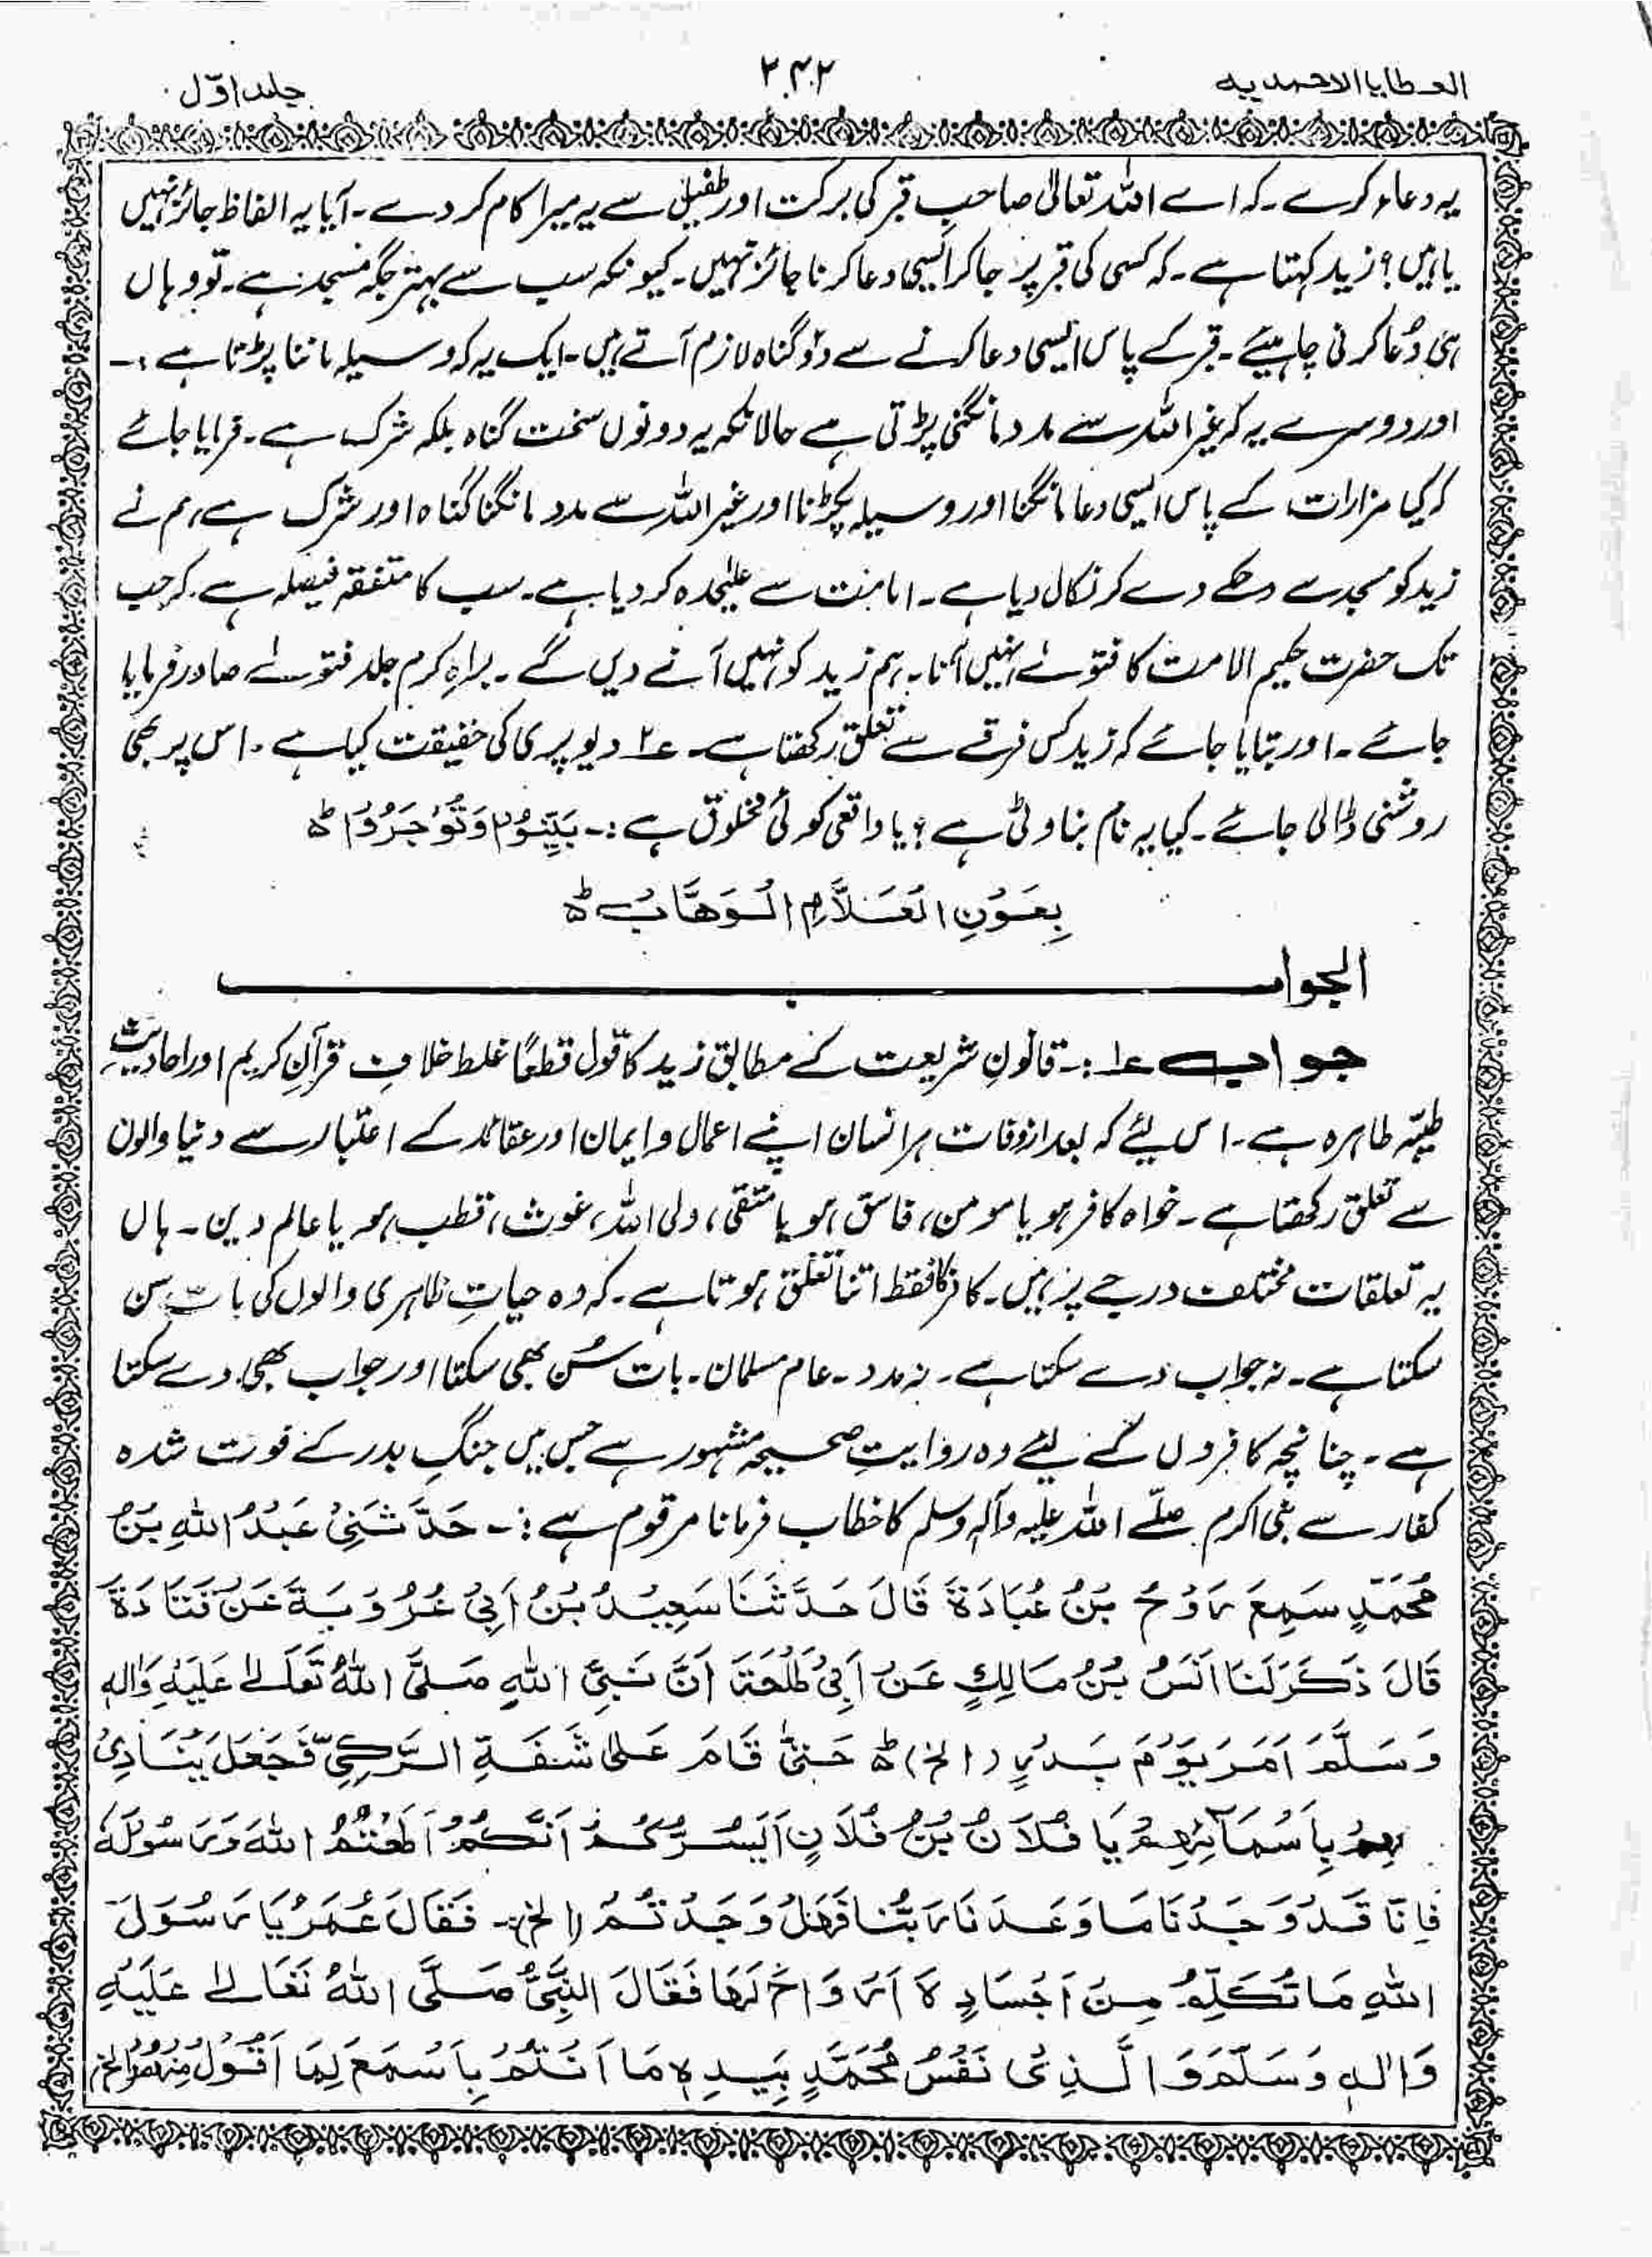 العطایا الاحمدیہ
۲۴۲
جلد اوّل
یہ دعاء کرے۔ کہ اے اللہ تعالیٰ صاحبِ قبر کی برکت اور طفیل سے یہ میرا کام کر دے۔ آیا یہ الفاظ جائز نہیں
یا ہیں؟ زید کہتا ہے۔ کہ کسی کی قبر پر جا کر ایسی دعا کرنا جائز نہیں۔ کیونکہ سب سے بہتر جگہ مسجد ہے۔ تو وہاں
ہی دُعا کرنی چاہیئے۔ قبر کے پاس ایسی دعا کرنے سے دو گناہ لازم آتے ہیں۔ ایک یہ کہ وسیلہ ماننا پڑتا ہے :۔
اور دوسرے یہ کہ غیر اللہ سے مدد مانگنی پڑتی ہے حالانکہ یہ دونوں سخت گناہ بلکہ شرک ہے۔ فرمایا جائے
کہ کیا مزارات کے پاس ایسی دعا مانگنا اور وسیلہ پکڑنا اور غیر اللہ سے مدد مانگنا گناہ اور شرک ہے، ہم نے
زید کو مسجد سے دھکے دے کر نکال دیا ہے۔ امامت سے علیٰحدہ کر دیا ہے۔ سب کا متفقہ فیصلہ ہے۔ کہ جب
تک حضرت حکیم الامت کا فتوٰے نہیں آتا۔ ہم زید کو نہیں آنے دیں گے۔ براہِ کرم جلد فتوٰے صادر فرمایا
جائے۔ اور بتایا جائے کہ زید کس فرقے سے تعلق رکھتا ہے۔ ۲؎ دیو پری کی حقیقت کیا ہے۔ اس پر بھی
روشنی ڈالی جائے۔ کیا یہ نام بناوٹی ہے؟ یا واقعی کوئی مخلوق ہے :۔ بَیِّنُوْا وَتُوْجَرُوْا ط
بِعَوْنِ الْعَلَّامِ الْوَھَّابْ ط
الجواب
جواب ۱؎ :۔ قانونِ شریعت کے مطابق زید کا قول قطعًا غلط خلافِ قرآنِ کریم اور احادیثِ
طیّبہ طاہرہ ہے۔ اس لیئے کہ بعد از وفات ہر انسان اپنے اعمال و ایمان اور عقائد کے اعتبار سے دنیا والوں
سے تعلق رکھتا ہے۔ خواہ کافر ہو یا مومن، فاسق ہو یا متقی، ولی اللہ، غوث، قطب ہو یا عالم دین۔ ہاں
یہ تعلقات مختلف درجے پر ہیں۔ کافر کا فقط اتنا تعلق ہوتا ہے۔ کہ وہ حیاتِ ظاہری والوں کی بات سن
سکتا ہے۔ نہ جواب دے سکتا ہے۔ نہ مدد۔ عام مسلمان۔ بات سُن بھی سکتا اور جواب بھی دے سکتا
ہے۔ چنانچہ کافروں کے لیئے وہ روایتِ صحیحہ مشہور ہے جس میں جنگِ بدر کے فوت شدہ
کفار سے نبی اکرم صلّے اللہ علیہ وآلہٖ وسلم کا خطاب فرمانا مرقوم ہے :۔ حَدَّثَنِیْ عَبْدُ اللہِ بْنُ
مُحَمَّدٍ سَمِعَ رَوْحَ بْنَ عُبَادَۃَ قَالَ حَدَّثَنَا سَعِیْدُ بْنُ اَبِیْ عَرُوْبَۃَ عَنْ قَتَادَۃَ
قَالَ ذَکَرَ لَنَا اَنَسُ بْنُ مَالِکٍ عَنْ اَبِیْ طَلْحَۃَ اَنَّ نَبِیَّ اللہِ صَلَّی اللہُ تَعَالٰے عَلَیْہِ وَاٰلِہٖ
وَسَلَّمَ اَمَرَ یَوْمَ بَدْرٍ (الخ) ط حَتّٰی قَامَ عَلٰی شَفَۃِ الرَّکِیِّ فَجَعَلَ یُنَادِیْ
ھِمْ بِاَسْمَآئِھِمْ یَا فُلَانُ بْنُ فُلَانٍ اَیَسُرُّکُمْ اَنَّکُمْ اَطَعْتُمُ اللہَ وَرَسُوْلَہٗ
فَاِنَّا قَدْ وَجَدْنَا مَا وَعَدَنَا رَبُّنَا فَھَلْ وَجَدْتُمْ (الخ)۔ فَقَالَ عُمَرُ یَا رَسُوْلَ
اللہِ مَا تُکَلِّمُ مِنْ اَجْسَادٍ لَا اَرْوَاحَ لَھَا فَقَالَ النَّبِیُّ صَلَّی اللہُ تَعَالٰے عَلَیْہِ
وَاٰلِہٖ وَسَلَّمَ وَالَّذِیْ نَفْسُ مُحَمَّدٍ بِیَدِہٖ مَا اَنْتُمْ بِاَسْمَعَ لِمَا اَقُوْلُ مِنْھُمْ (الخ)